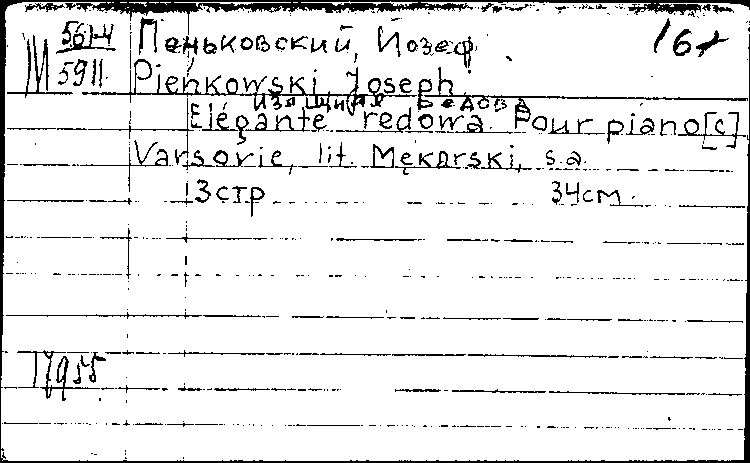 М 561-4 Пеньковский, Йозеф 16
5911 Pieńkowski, Joseph
Изящная Редова
Elégante redowa. Pour piano [c]
Varsovie, lit. Mękarski, s.a.
3 стр 34 см.
17955